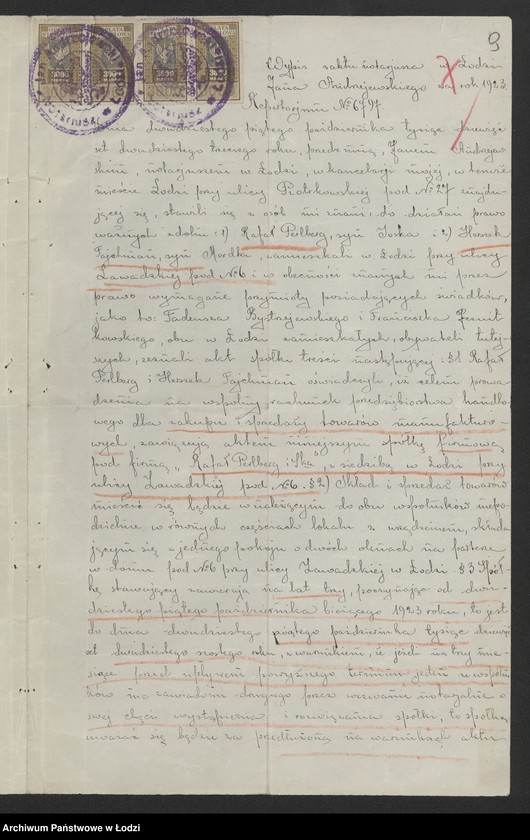 9
Wypis z aktu notarjusza w Łodzi
Jana Andrzejewskiego za rok 1923.
Repertorjum № 6797.
Dnia dwudziestego piątego października tysiąc dziewięć-
set dwudziestego trzeciego roku, przedemną, Janem Andrzejew-
skim, notarjuszem w Łodzi, w kancelarji mojej, w temże
mieście Łodzi przy ulicy Piotrkowskiej pod № 27 znajdu-
jącej się, stawili się z osób mi znani, do działań prawo-
ważnych zdolni: 1) Rafał Perlberg, syn Joska i 2) Herszek
Fajchman, syn Mordki, zamieszkali w Łodzi przy ulicy
Zawadzkiej pod № 6 i w obecności znanych mi przez
prawo wymagane przymioty posiadających świadków,
jako to: Tadeusza Bystrzejewskiego i Franciszka
kowskiego, obu w Łodzi zamieszkałych, obywateli tutej-
szych, zeznali akt spółki treści następującej: §1 Rafał
Perlberg i Herszek Fajchman oświadczyli, iż celem prowa-
dzenia na wspólny rachunek przedsiębiorstwa handlo-
wego dla zakupu i sprzedaży towarów manufakturo-
wych, zawiązują aktem niniejszym spółkę firmową
pod firmą „Rafał Perlberg i Ska", z siedzibą w Łodzi przy
ulicy Zawadzkiej pod № 6. §2) Skład i sprzedaż towarów
mieścić się będzie w należącym do obu wspólników niepo-
dzielnie w równych częściach lokalu z urządzeniem, składa-
jącym się z jednego pokoju o dwóch oknach na parterze
w domu pod № 6 przy ulicy Zawadzkiej w Łodzi. §3 Spół-
kę stawający zawierają na lat trzy, poczynając od dwu-
dziestego piątego października bieżącego 1923 roku, to jest
do dnia dwudziestego piątego października tysiąc dziewięć-
set dwudziestego szóstego roku, z warunkiem, że jeżeli na trzy mie-
siące przed upływem powyższego terminu jeden z wspólni-
ków nie zawiadomi drugiego przez wezwanie notarjalne o
swej chęci wystąpienia i rozwiązania spółki, to spółka
uważać się będzie za przedłużoną na warunkach aktu
Archiwum Państwowe w Łodzi